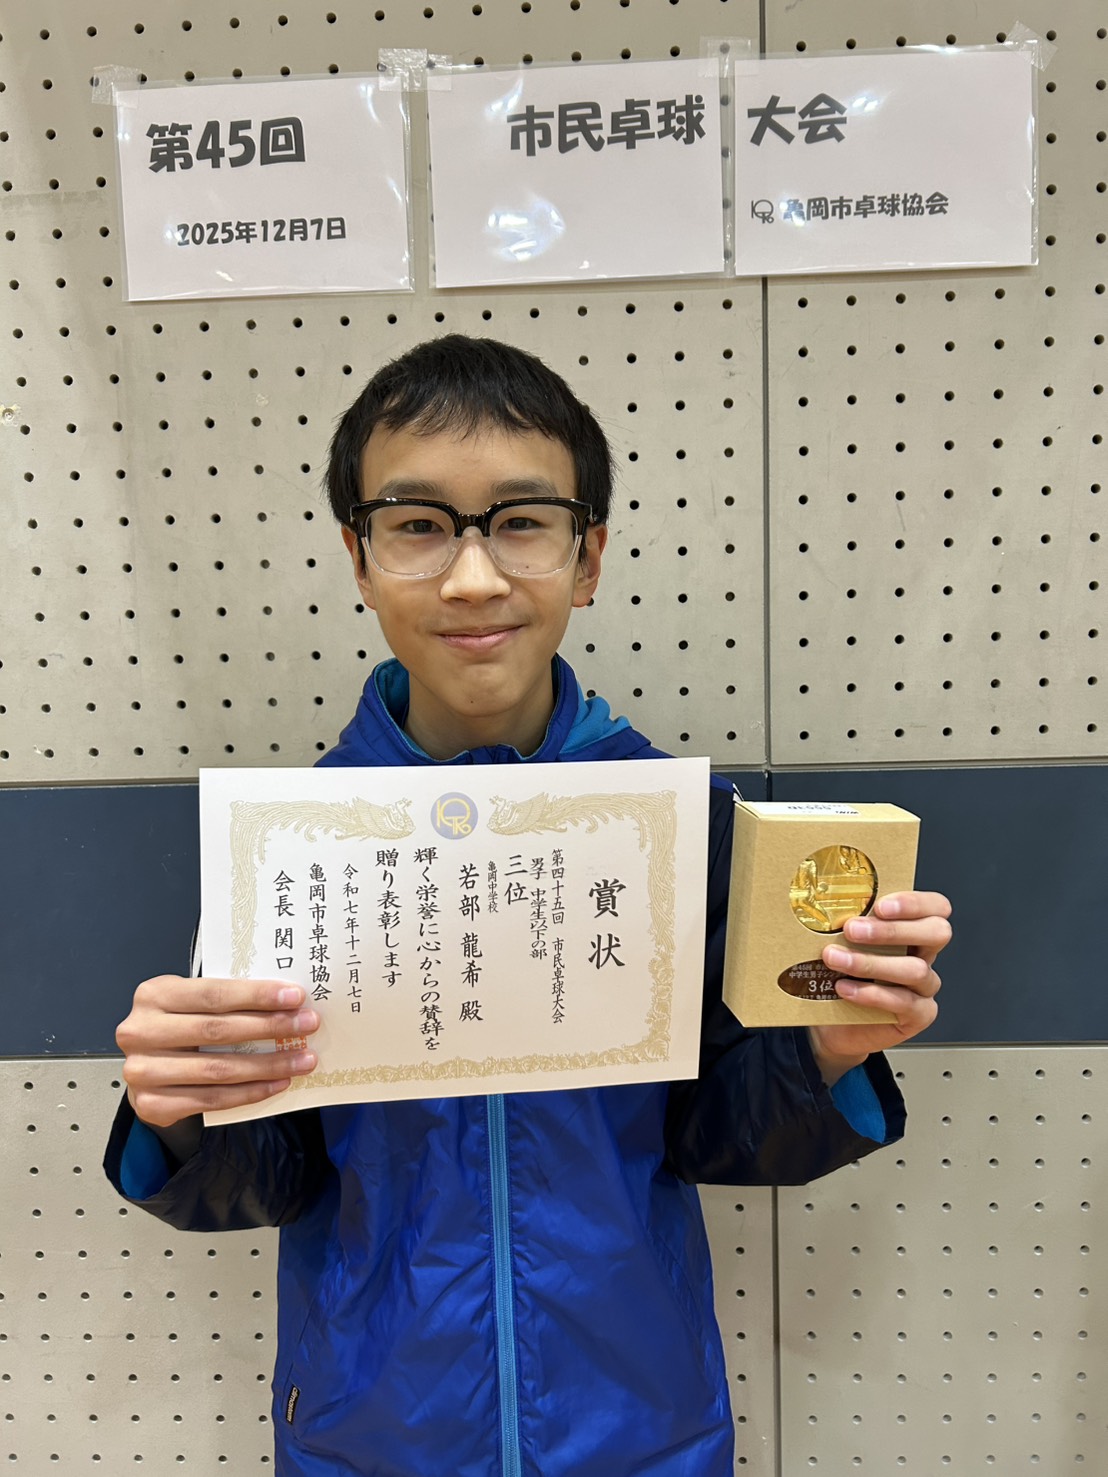 第45回
2025年12月7日
市民卓球
大会
亀岡市卓球協会
賞状
第四十五回 市民卓球大会
男子 中学生以下の部
三位
亀岡中学校
若部 龍希 殿
輝く栄誉に心からの賛辞を
贈り表彰します
令和七年十二月七日
亀岡市卓球協会
会長 関口
第45回 市民
中学生男子シン
3位